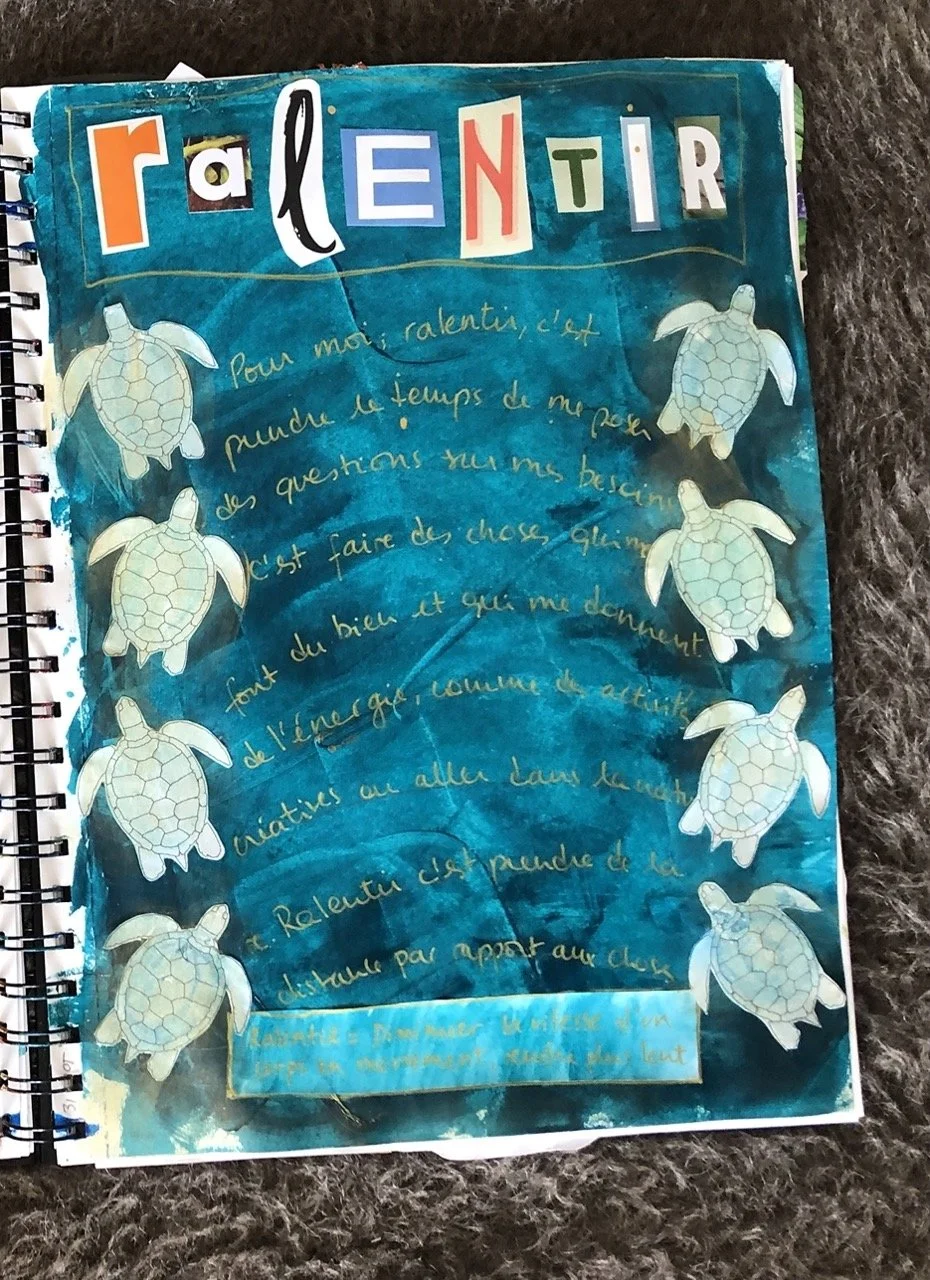 ralENTIR
Pour moi, ralentir, c'est
prendre le temps de me poser
des questions sur mes besoins
c'est faire des choses qui me
font du bien et qui me donnent
de l'énergie, comme des activités
créatives ou aller dans la natu
re. Ralentir c'est prendre de la
distance par rapport aux choses
Ralentir : Diminuer la vitesse d'un
corps en mouvement, rendre plus lent
31